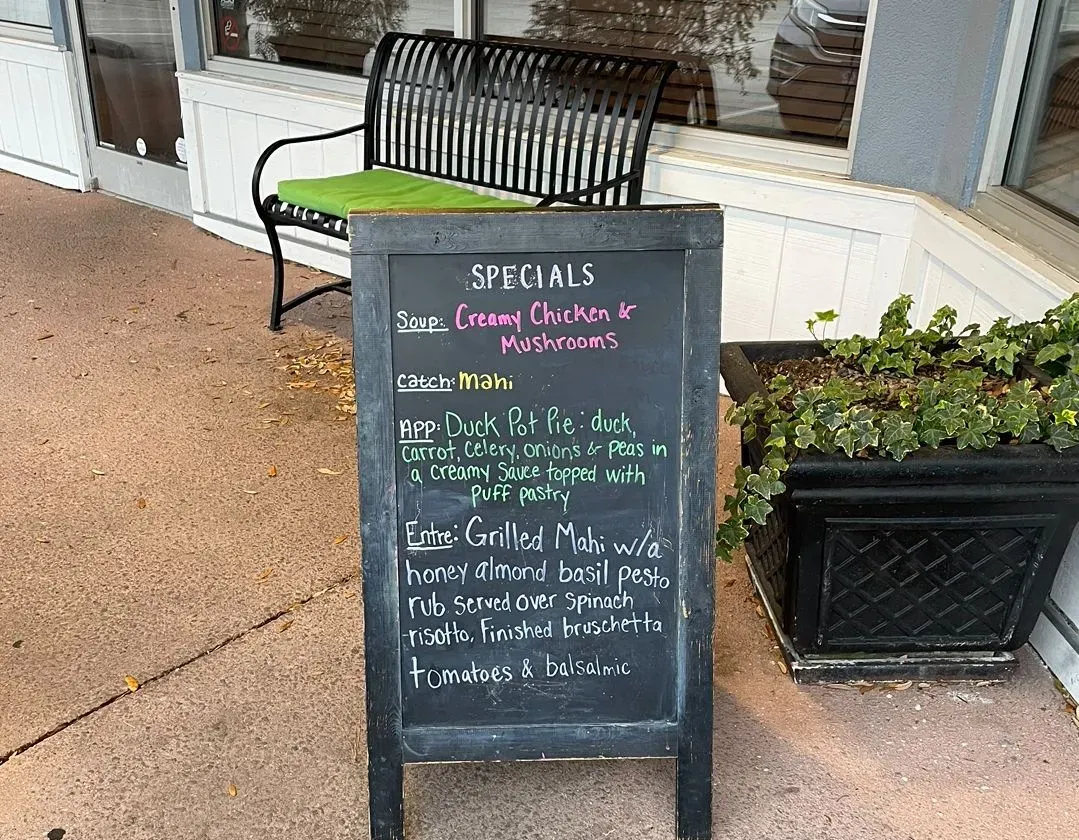 SPECIALS
Soup: Creamy Chicken &
Mushrooms
catch: Mahi
APP: Duck Pot Pie: duck,
carrot, celery, onions & peas in
a creamy sauce topped with
puff pastry
Entre: Grilled Mahi w/a
honey almond basil pesto
rub served over spinach
risotto, Finished bruschetta
tomatoes & balsalmic